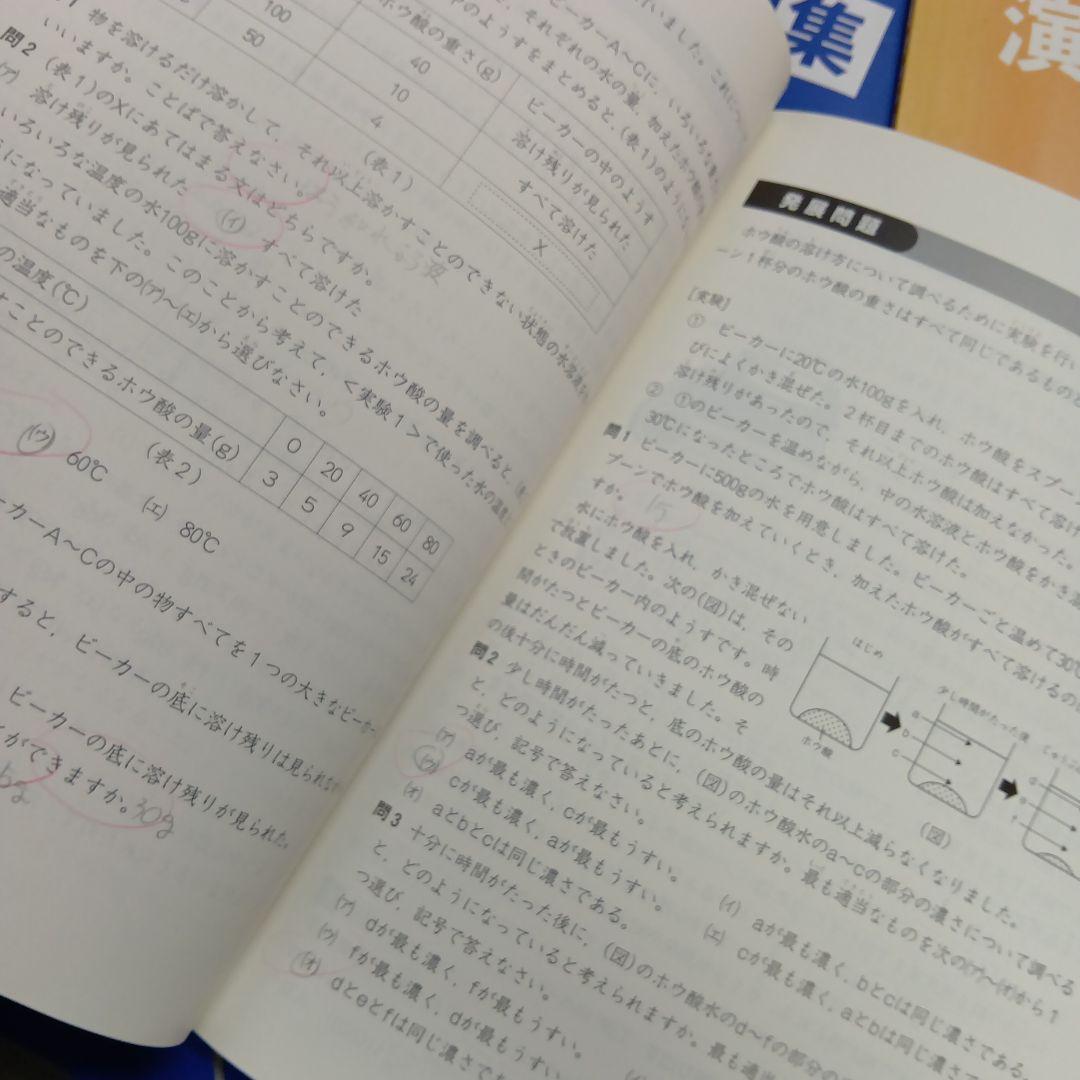 集
演
いました。これに
ビーカーA〜Cに、いろいろな
、それぞれの水の量、加えたホウ酸
中のようすをまとめると、(表1)のように
ホウ酸の重さ(g)
ビーカーの中のようす
100
40
溶け残りが見られた
50
10
すべて溶けた
4
X
(表1)
物を溶けるだけ溶かして、それ以上溶かすことのできない状態の水溶液
いいますか。ことばで答えなさい。
問2 (表1)のXにあてはまる文はどちらですか。
(ア) 溶け残りが見られた
(イ) すべて溶けた
いろいろな温度の水100gに溶かすことのできるホウ酸の量を調べると、
になっていました。このことから考えて、<実験1>で使った水の温度
適当なものを下の(ア)〜(エ)から選びなさい。
の温度(℃) 0 20 40 60 80
すことのできるホウ酸の量(g) 3 5 9 15 24
(表2)
(ウ) 60℃ (エ) 80℃
ーカーA〜Cの中の物すべてを1つの大きなビーカー
すると、ビーカーの底に溶け残りは見られな
ビーカーの底に溶け残りが見られた。
ができますか。30g
発展問題
ホウ酸の溶け方について調べるために実験を行い
ーン1杯分のホウ酸の重さはすべて同じであるものと
[実験]
① ビーカーに20℃の水100gを入れ、ホウ酸をスプー
びによくかき混ぜた。2杯目までのホウ酸はすべて溶け
溶け残りがあったので、それ以上ホウ酸は加えなかった。
② ①のビーカーを温めながら、中の水溶液とホウ酸をかき混
30℃になったところでホウ酸はすべて溶けた。
問1 ビーカーに500gの水を用意しました。ビーカーごと温めて30℃
プーンでホウ酸を加えていくとき、加えたホウ酸がすべて溶けるのは
すか。 15
水にホウ酸を入れ、かき混ぜない
で放置しました。次の(図)は、その
ときのビーカー内のようすです。時
間がたつとビーカーの底のホウ酸の
量はだんだん減っていきました。そ
の後十分に時間がたつと、底のホウ酸の量はそれ以上減らなくなりました。
はじめ
ホウ酸
少し時間がたった後
a
b
c
d
e
f
(図)
問2 少し時間がたったあとに、(図)のホウ酸水のa〜cの部分の濃さについて調べる
と、どのようになっていると考えられますか。最も適当なものを次の(ア)〜(オ)から1
つ選び、記号で答えなさい。
(ア) aが最も濃く、cが最もうすい。
(イ) aが最も濃く、bとcは同じ濃さである。
(ウ) cが最も濃く、aが最もうすい。
(エ) cが最も濃く、aとbは同じ濃さで
(オ) aとbとcは同じ濃さである。
問3 十分に時間がたった後に、(図)のホウ酸水のd〜fの部分の
と、どのようになっていると考えられますか。最も適当
つ選び、記号で答えなさい。
(ア) dが最も濃く、fが最もうすい。
(ウ) fが最も濃く、dが最もうすい
(オ) dとeとfは同じ濃さで